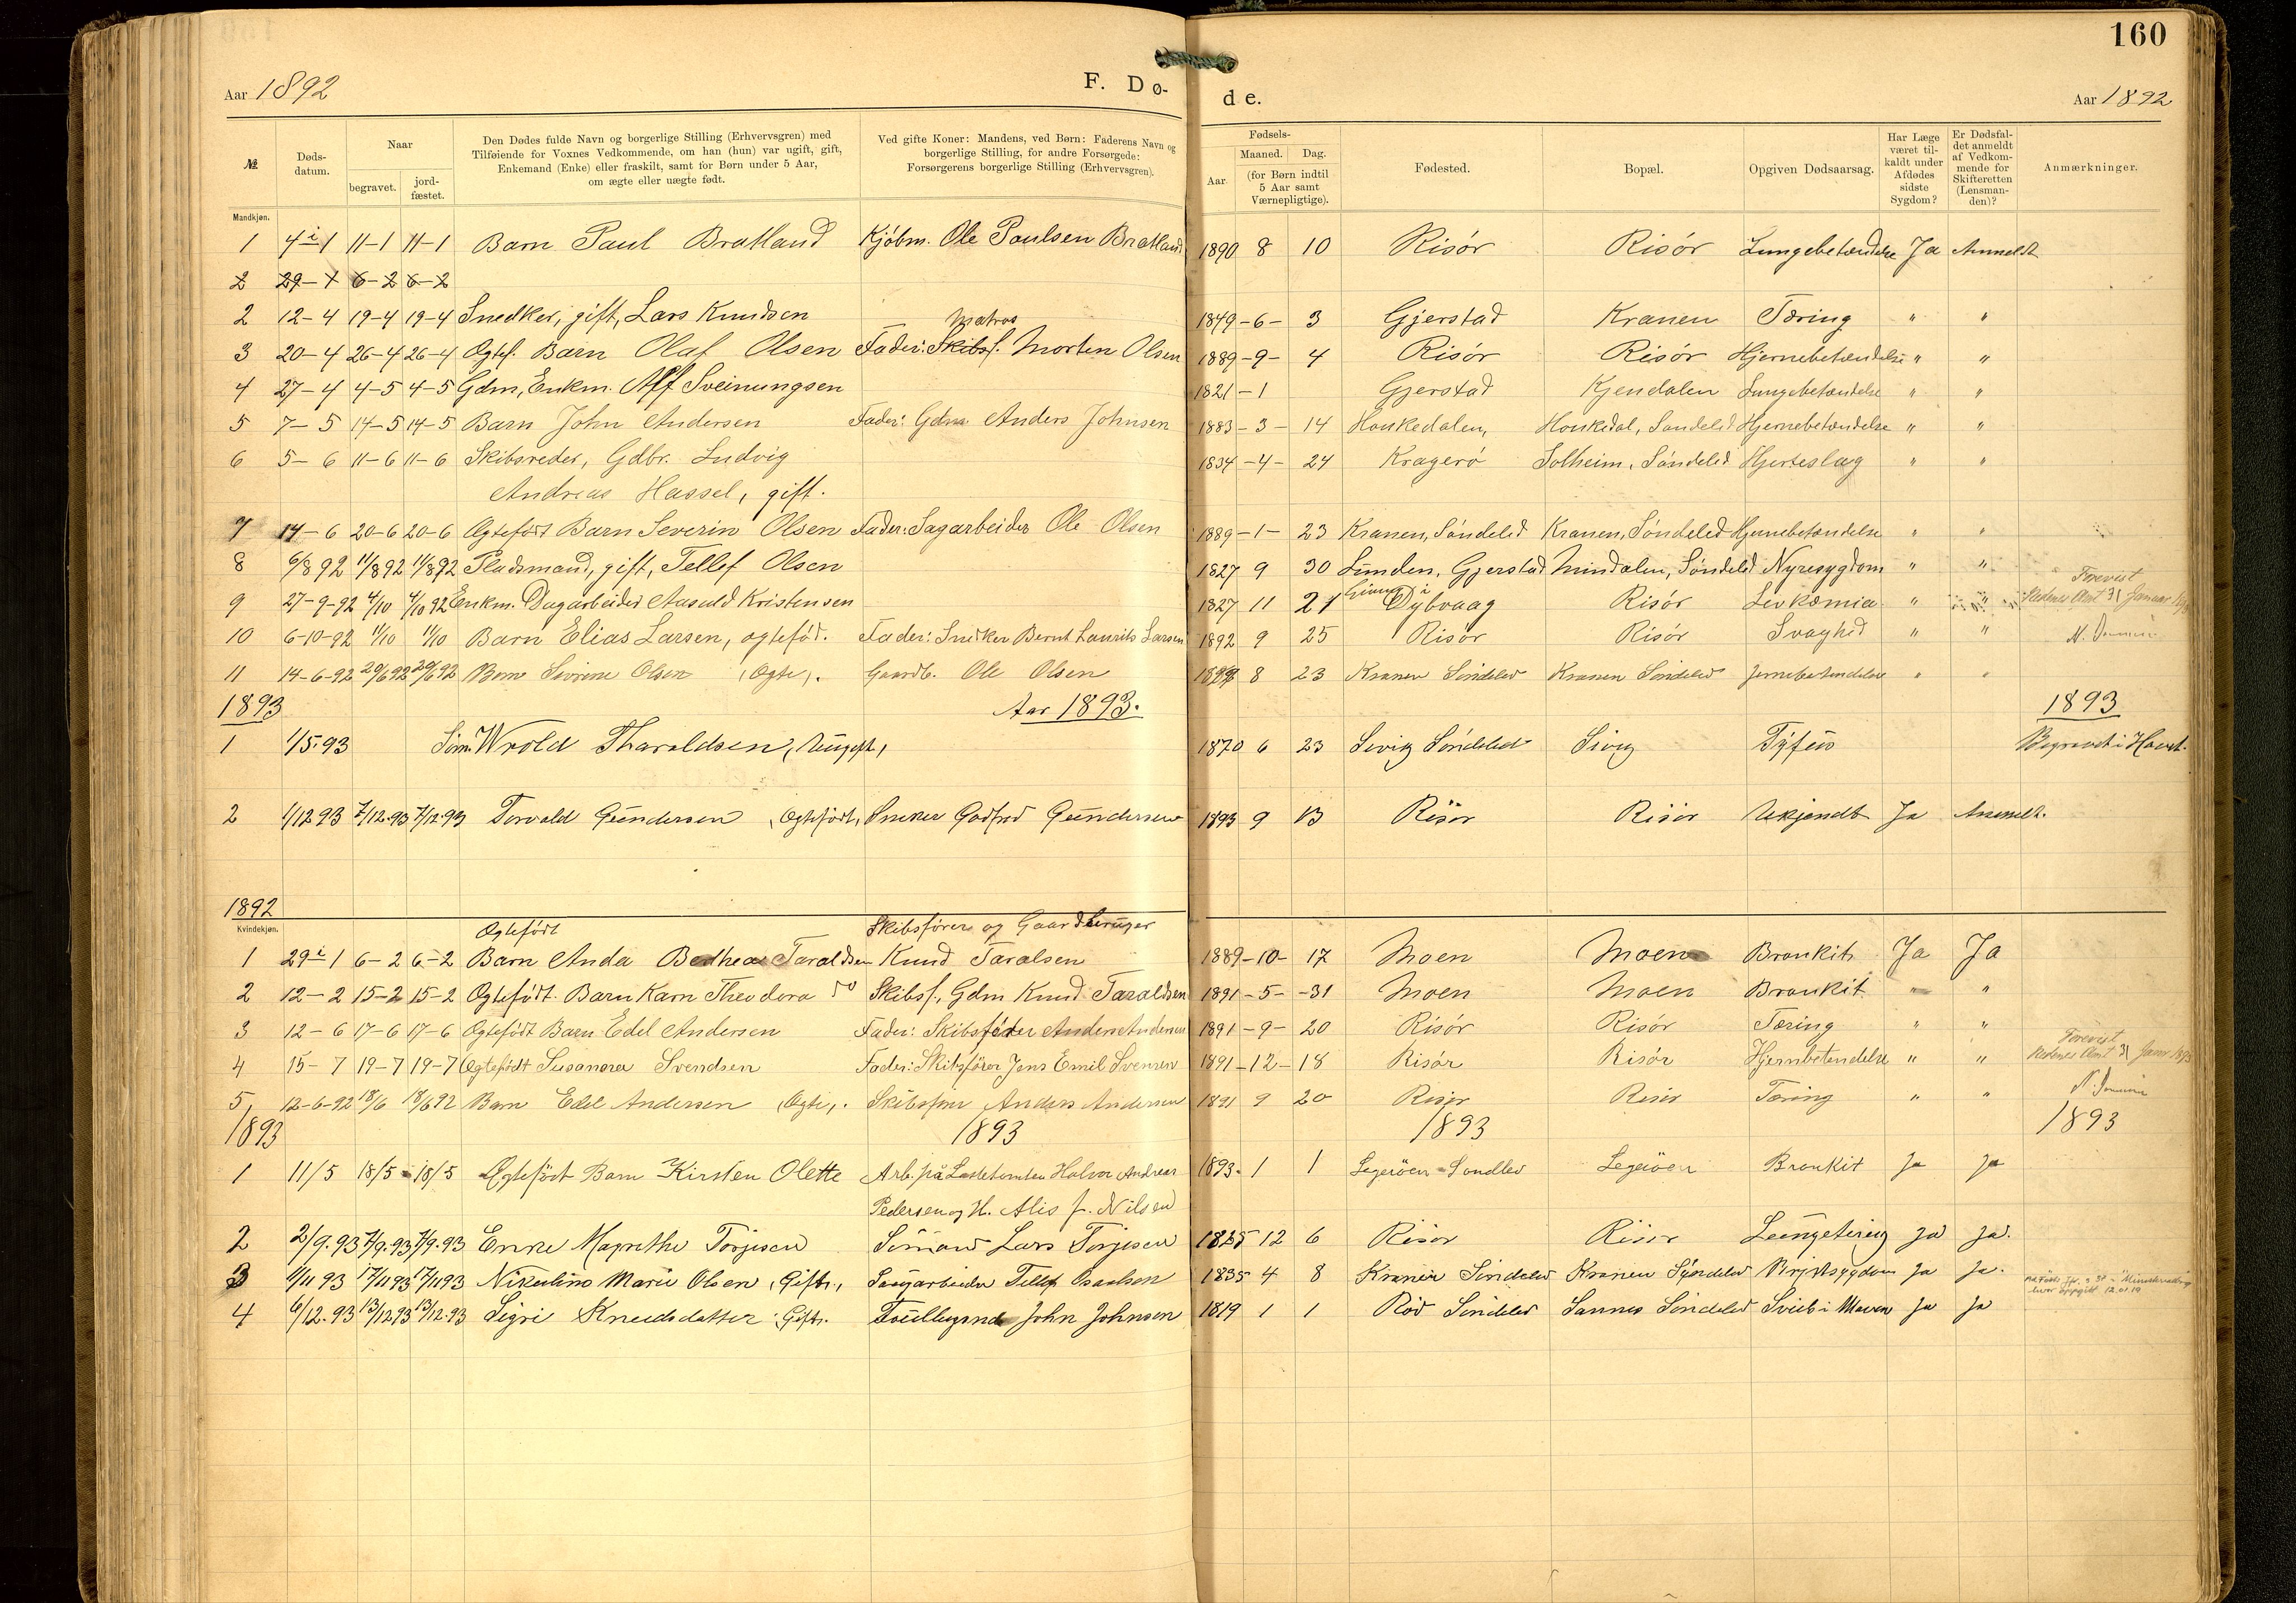 160
Aar 1892 F. Dø- de. Aar 1892
№ Døds-datum. Naar begravet. jord-fæstet. Den Dødes fulde Navn og borgerlige Stilling (Erhvervsgren) med Tilføiende for Voxnes Vedkommende, om han (hun) var ugift, gift, Enkemand (Enke) eller fraskilt, samt for Børn under 5 Aar, om ægte eller uægte født. Ved gifte Koner: Mandens, ved Børn: Faderens Navn og borgerlige Stilling, for andre Forsørgede: Forsørgerens borgerlige Stilling (Erhvervsgren). Fødsels- Aar. Maaned. Dag. (for Børn indtil 5 Aar samt Værnepligtige). Fødested. Bopæl. Opgiven Dødsaarsag. Har Læge været til-kaldt under Afdødes sidste Sygdom? Er Dødsfal-det anmeldt af Vedkom-mende for Skifteretten (Lensman-den)? Anmærkninger.
Mandkjøn.
1 4 i 1 11-1 11-1 Barn Paul Bratland Kjøbm. Ole Paulsen Bratland 1890 8 10 Risór Risór Lungebetændelse Ja Anmeldt
2 29-1 6-2 6-2
2 12-4 19-4 19-4 Snedker, gift, Lars Knudsen 1849-6- 3 Gjerstad Kranen Tæring " "
Matros
3 20-4 26-4 26-4 Ogtef. Barn Olaf Olsen Fader: Skibsf. Morten Olsen 1889-9- 4 Risór Risór Hjernebetændelse " "
4 27-4 4-5 4-5 Gdm, Enkm. Alf Sveinungsen 1821-1 Gjerstad Kjendalen Lungebetændelse " "
5 7-5 14-5 14-5 Barn John Andersen Fader: Gdm Anders Johnsen 1883-3- 14 Houkedalen, Houkedal, Søndeled Hjernebetændelse " "
6 5-6 11-6 11-6 Skibsreder, Gdbr. Ludvig 1834-4- 24 Krageró Solheim, Sóndeled Hjerteslag " "
Andreas Hassel, gift.
7 14-6 20-6 20-6 Ogtefódt Barn Severin Olsen Fader: Sagarbeider Ole Olsen 1889-1- 23 Kranen, Sóndeled Kranen, Sóndeled Hjernebetændelse " "
8 6/8 92 11/8 92 11/8 92 Pladsmand, gift, Tellef Olsen 1827 9 30 Lunden, Gjerstad Mindalen, Sóndeled Nyresygdom " "
9 27-9-92 4/10 4/10 92 Enkm. Dagarbeider Aasuld Kristensen 1827 11 21 i Dybvaag Risór Leukæmia " " Forevist Nedenes Amt 31 Januar
10 6-10-92 11/10 11/10 Barn Elias Larsen, ogtefód. Fader: Snedker Bernt Laurits Larsen 1892 9 25 Risór Risór Svaghed " "
11 14-6-92 20/6 92 20/6 92 Barn Severine Olsen (Ogte). Gaardb. Ole Olsen 8 23 Kranen Sóndeled Kranen Sóndeled Jernebetendelse " "
1893 Aar 1893. 1893
1 1/5.93 Sóm. Wrold Tharaldsen, (Uugift, 1870 6 23 Sevig Sóndeled Sivig Tyfus Begravet i
2 1/12 93 7/12.93 7/12.93 Torvald Gundersen (Ogtefódt, Sneker Godfred Gundersen 1893 9 13 Risór Risór Ukjendt Ja Anmeldt.
1892
Kvindekjøn.
Ogtefódt Skibsfórer og Gaardbruger
1 29 i 1 6-2 6-2 Barn Anda Berthea Taraldsen Knud Taralsen 1889-10- 17 Moen Moen Bronkit Ja Ja
2 12-2 15-2 15-2 Ogtefódt. Barn Karn Theodora do Skibsf., Gdm Knud Taraldsen 1891-5- -31 Moen Moen Bronkit " "
3 12-6 17-6 17-6 Ogtefódt Barn Edel Andersen Fader: Skibsfórer Anders Andersen 1891-9- 20 Risór Risór Tæring " "
4 15-7 19-7 19-7 Ogtefódt Susanna Svendsen Fader: Skibsfórer Jens Emil Svensen 1891-12-18 Risór Risór Hjernbetendelse " " Forevist Nedenes Amt 31 Januar 1893
5, 12-6-92 18/6 18/6 92 Barn Edel Andersen (Ogte). Skibsfórer Anders Andersen 1891 9 20 Risór Risór Tæring " "
1893 1893 1893 1893
1 11/5 18/5 18/5 Ogtefódt Barn Kirsten Olette Arb. på Lastetomten Halvor Andreas 1893- 1 1 Legeröen Söndled Legeröen Bronkit Ja Ja
Pedersen og H. Alis f. Nilsen
2 2/9.93 7/9.93 7/9.93 Enke Magrethe Torjesen Sómand Lars Torjesen 1825 12 6 Risór Risór Lungetering Ja Ja.
3 11/11 93 17/11 93 17/11 93 Nikoline Marie Olsen (Gift), Saugarbeider Tellef Osuldsen 1835 4 8 Kranen Sóndeled Kranen Sóndeled Brystsygdom Ja Ja.
4 6/12.93 13/12 93 13/12.93 Sigri Knudsdatter (Gift). John Johnsen 1819 1 1 Rød Sóndeled Sannes Sóndeled i Maven Ja Ja